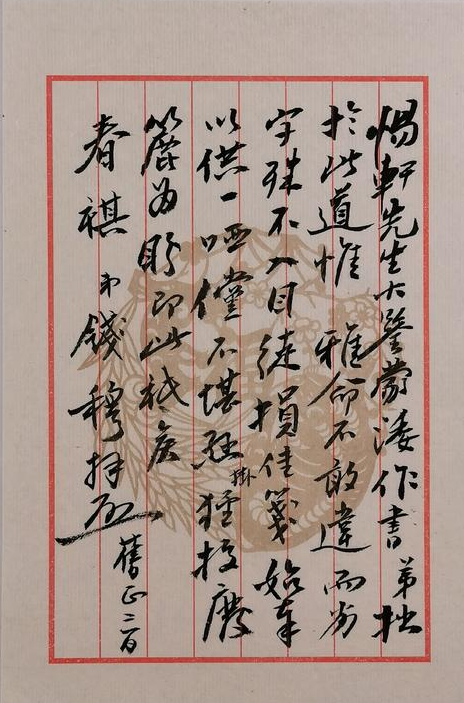 惕軒先生大鑒蒙諉作書弟拙
於此道惟雅命不敢違而劣
字殊不入目徒損佳箋始奉
以供一哂儻不堪張掛獲投廢
簏為盼即此祇矦
春祺弟錢穆拜啟
舊正二百